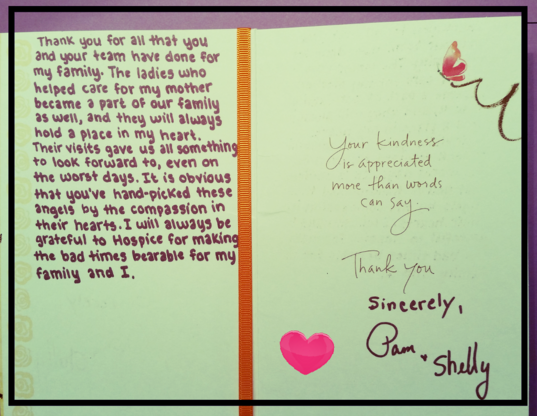 Thank you for all that you
and your team have done for
my family. The ladies who
helped care for my mother
became a part of our family
as well, and they will always
hold a place in my heart.
Their visits gave us all something
to look forward to, even on
the worst days. It is obvious
that you've hand-picked these
angels by the compassion in
their hearts. I will always be
grateful to Hospice for making
the bad times bearable for my
family and I.
Your kindness
is appreciated
more than words
can say
Thank you
Sincerely,
Pam + Shelly